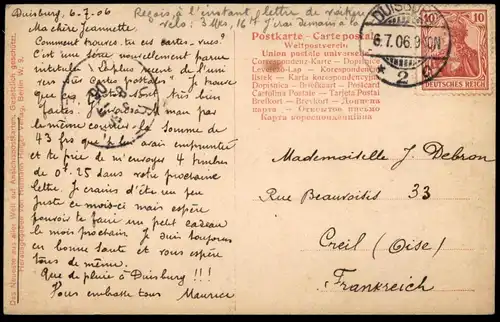 Duisburg, 6.7.06
Reçois à l'instant, lettre de
Ma chère Jeannette
Comment trouves-tu ces cartes-vues? C'est
une série nouvellement parue
intitulée "Le plus recent de l'uni-
vers
que les cartes sont très bien
faites. J'envoie à Maman par
le même courrier la somme de
43 frs que j'ai
et te prie de m'envoyer 4 timbres
de 0f.25 dans votre prochaine
lettre. Je crains d'être un peu
juste ce mois-ci mais espère
pouvoir te faire un petit cadeau
le mois prochain. J suis toujours
en bonne santé et vous espère
tous de même.
Que de pluie à Duisburg !!!
Vous embrasse tous Maurice
Postkarte - Carte postale
Weltpostverein
Union postale universelle
Correspondenz-Karte - Dopisnice
Levelező-Lap - Korespondenční
Karta korespondencyjna
Dopisnica - Briefkaart - Postcard
Cartolina Postale - Tarjeta Postal
Brefkort - Brevkort - Дописна карта
Открытое письмо
Карта кореспонденціина
DUISBURG
6.7.06.
* 2 c.
10 10
DEUTSCHES REICH
Mademoiselle J. Debron
Rue Beauvoisis 33
Creil (Oise)
Frankreich
Das Neueste aus aller Welt auf Ansichtspostkarten. Gesetzlich geschützt.
Herausgegeben von Hermann Hillger Verlag, Berlin W. 9.